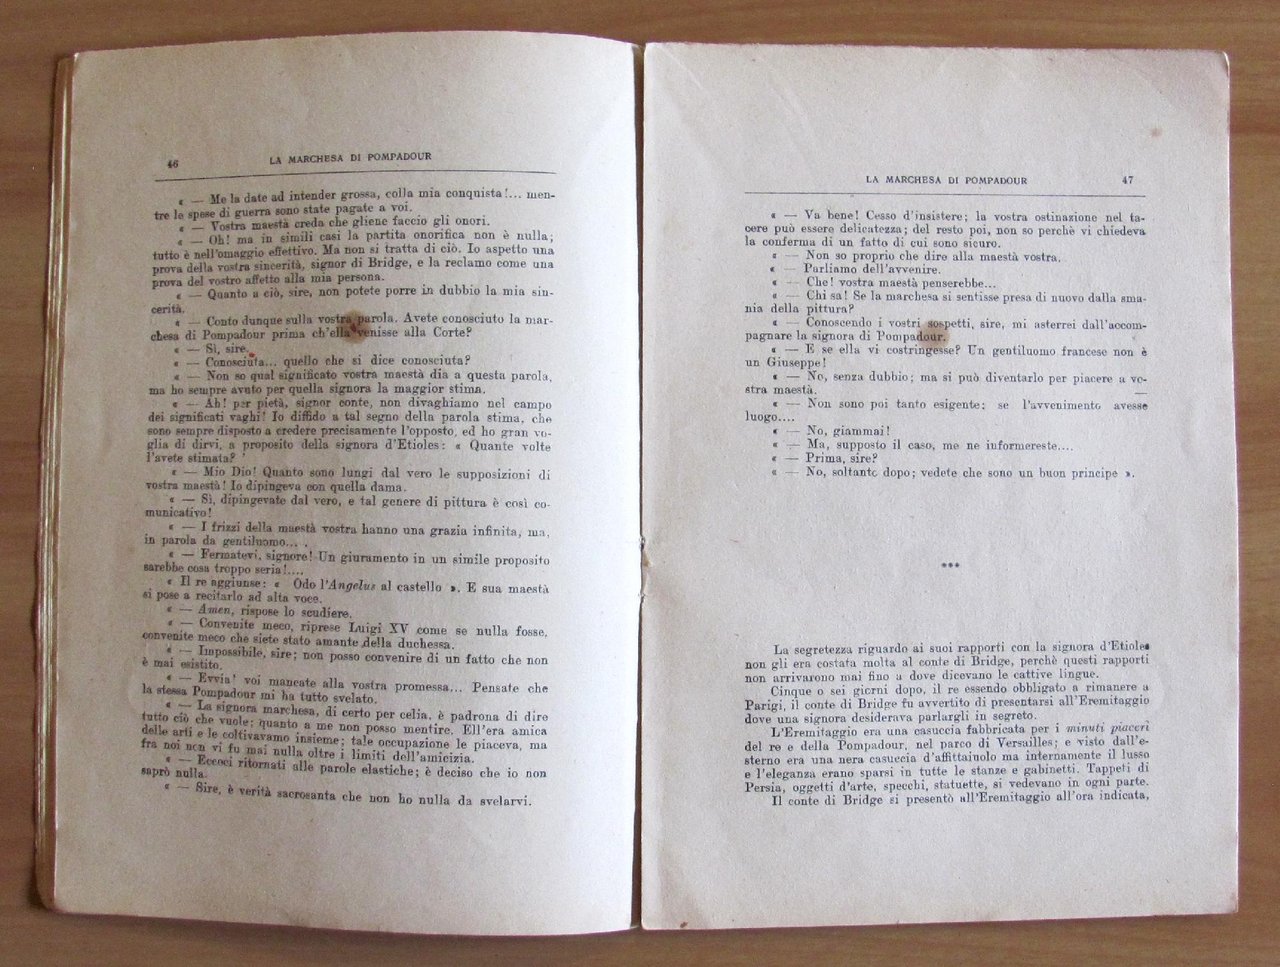 46 LA MARCHESA DI POMPADOUR
« — Me la date ad intender grossa, colla mia conquista!... men-
tre le spese di guerra sono state pagate a voi.
« — Vostra maestà creda che gliene faccio gli onori.
« — Oh! ma in simili casi la partita onorifica non è nulla;
tutto è nell'omaggio effettivo. Ma non si tratta di ciò. Io aspetto una
prova della vostra sincerità, signor di Bridge, e la reclamo come una
prova del vostro affetto alla mia persona.
« — Quanto a ciò, sire, non potete porre in dubbio la mia sin-
cerità.
« — Conto dunque sulla vostra parola. Avete conosciuto la mar-
chesa di Pompadour prima ch'ella venisse alla Corte?
« — Sì, sire.
« — Conosciuta... quello che si dice conosciuta?
« — Non so qual significato vostra maestà dia a questa parola,
ma ho sempre avuto per quella signora la maggior stima.
« — Ah! per pietà, signor conte, non divaghiamo nel campo
dei significati vaghi! Io diffido a tal segno della parola stima, che
sono sempre disposto a credere precisamente l'opposto, ed ho gran vo-
glia di dirvi, a proposito della signora d'Etioles: « Quante volte
l'avete stimata? '
« — Mio Dio! Quanto sono lungi dal vero le supposizioni di
vostra maestà! Io dipingeva con quella dama.
« — Sì, dipingevate dal vero, e tal genere di pittura è così co-
municativo!
« — I frizzi della maestà vostra hanno una grazia infinita, ma,
in parola da gentiluomo... .
« — Fermatevi, signore! Un giuramento in un simile proposito
sarebbe cosa troppo seria!....
« Il re aggiunse: « Odo l'Angelus al castello ». E sua maestà
si pose a recitarlo ad alta voce.
« — Amen, rispose lo scudiere.
« — Convenite meco, riprese Luigi XV come se nulla fosse,
convenite meco che siete stato amante della duchessa.
« — Impossibile, sire; non posso convenire di un fatto che non
è mai esistito.
« — Evvia! voi mancate alla vostra promessa... Pensate che
la stessa Pompadour mi ha tutto svelato.
« — La signora marchesa, di certo per celia, è padrona di dire
tutto ciò che vuole; quanto a me non posso mentire. Ell'era amica
delle arti e le coltivavamo insieme; tale occupazione le piaceva, ma
fra noi non vi fu mai nulla oltre i limiti dell'amicizia.
« — Eccoci ritornati alle parole elastiche; è deciso che io non
saprò nulla.
« — Sire, è verità sacrosanta che non ho nulla da svelarvi.
LA MARCHESA DI POMPADOUR 47
« — Va bene! Cesso d'insistere; la vostra ostinazione nel ta-
cere può essere delicatezza; del resto poi, non so perchè vi chiedeva
la conferma di un fatto di cui sono sicuro.
« — Non so proprio che dire alla maestà vostra.
« — Parliamo dell'avvenire.
« — Che! vostra maestà penserebbe...
« — Chi sa! Se la marchesa si sentisse presa di nuovo dalla sma-
nia della pittura?
« — Conoscendo i vostri sospetti, sire, mi asterrei dall'accom-
pagnare la signora di Pompadour.
« — E se ella vi costringesse? Un gentiluomo francese non è
un Giuseppe!
« — No, senza dubbio; ma si può diventarlo per piacere a vo-
stra maestà.
« — Non sono poi tanto esigente; se l'avvenimento avesse
luogo....
« — No, giammai!
« — Ma, supposto il caso, me ne informereste....
« — Prima, sire?
« — No, soltanto dopo; vedete che sono un buon principe ».
***
La segretezza riguardo ai suoi rapporti con la signora d'Etioles
non gli era costata molta al conte di Bridge, perchè questi rapporti
non arrivarono mai fino a dove dicevano le cattive lingue.
Cinque o sei giorni dopo, il re essendo obbligato a rimanere a
Parigi, il conte di Bridge fu avvertito di presentarsi all'Eremitaggio
dove una signora desiderava parlargli in segreto.
L'Eremitaggio era una casuccia fabbricata per i minuti piaceri
del re e della Pompadour, nel parco di Versailles; e visto dall'e-
sterno era una nera casuccia d'affittaiuolo ma internamente il lusso
e l'eleganza erano sparsi in tutte le stanze e gabinetti. Tappeti di
Persia, oggetti d'arte, specchi, statuette, si vedevano in ogni parte.
Il conte di Bridge si presentò all'Eremitaggio all'ora indicata,